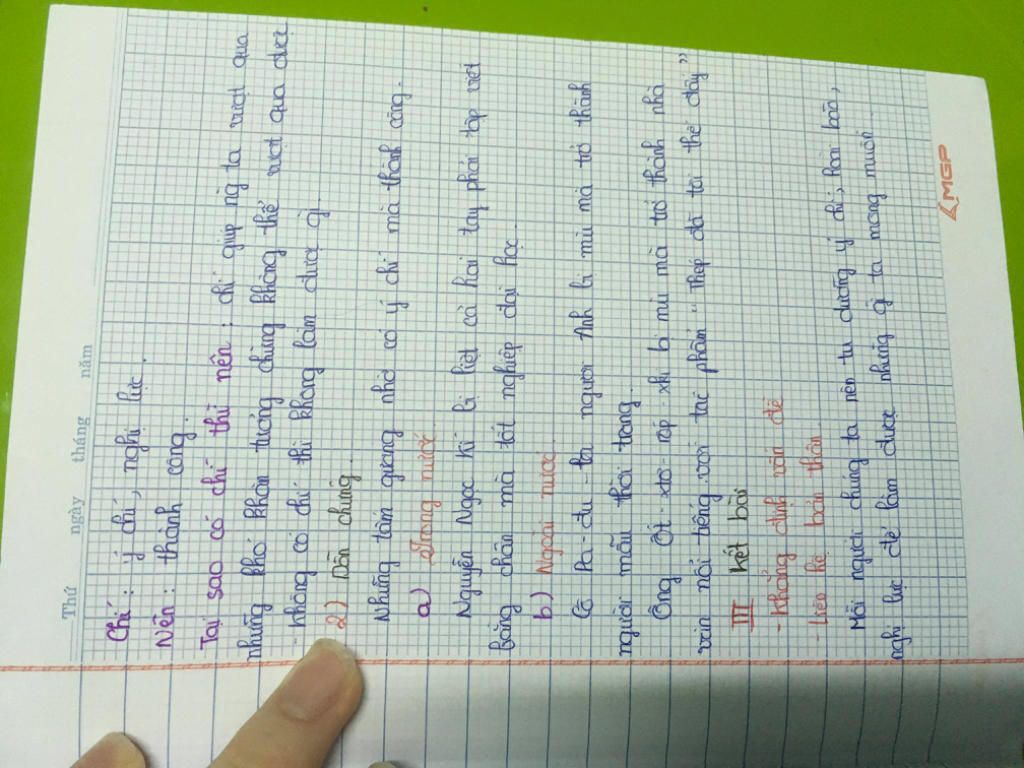 Thứ ngày tháng năm
Chí : ý chí, nghị lực.
Nên : thành công.
Tại sao có chí thì nên : chí giúp ng ta vượt qua
những khó khăn tưởng chừng không thể vượt qua được
- không có chí thì không làm được gì.
2) Dẫn chứng.
Những tấm gương nhờ có ý chí mà thành công.
a) Trong nước.
Nguyễn Ngọc kí bị liệt cả hai tay phải tập viết
bằng chân mà tốt nghiệp đại học.
b) Ngoài nước.
Cô Pa-đu-la người Anh bị mù mà trở thành
người mẫu thời trang.
Ông Ốt-xtơ-rốp-xki bị mù mà trở thành nhà
văn nổi tiếng với tác phẩm " Thép đã tôi thế đấy "
III kết bài
- khẳng định vấn đề
Liên hệ bản thân.
Mỗi người chúng ta nên tu dưỡng ý chí, hoài bão,
nghị lực để làm được những gì ta mong muốn.
MGP